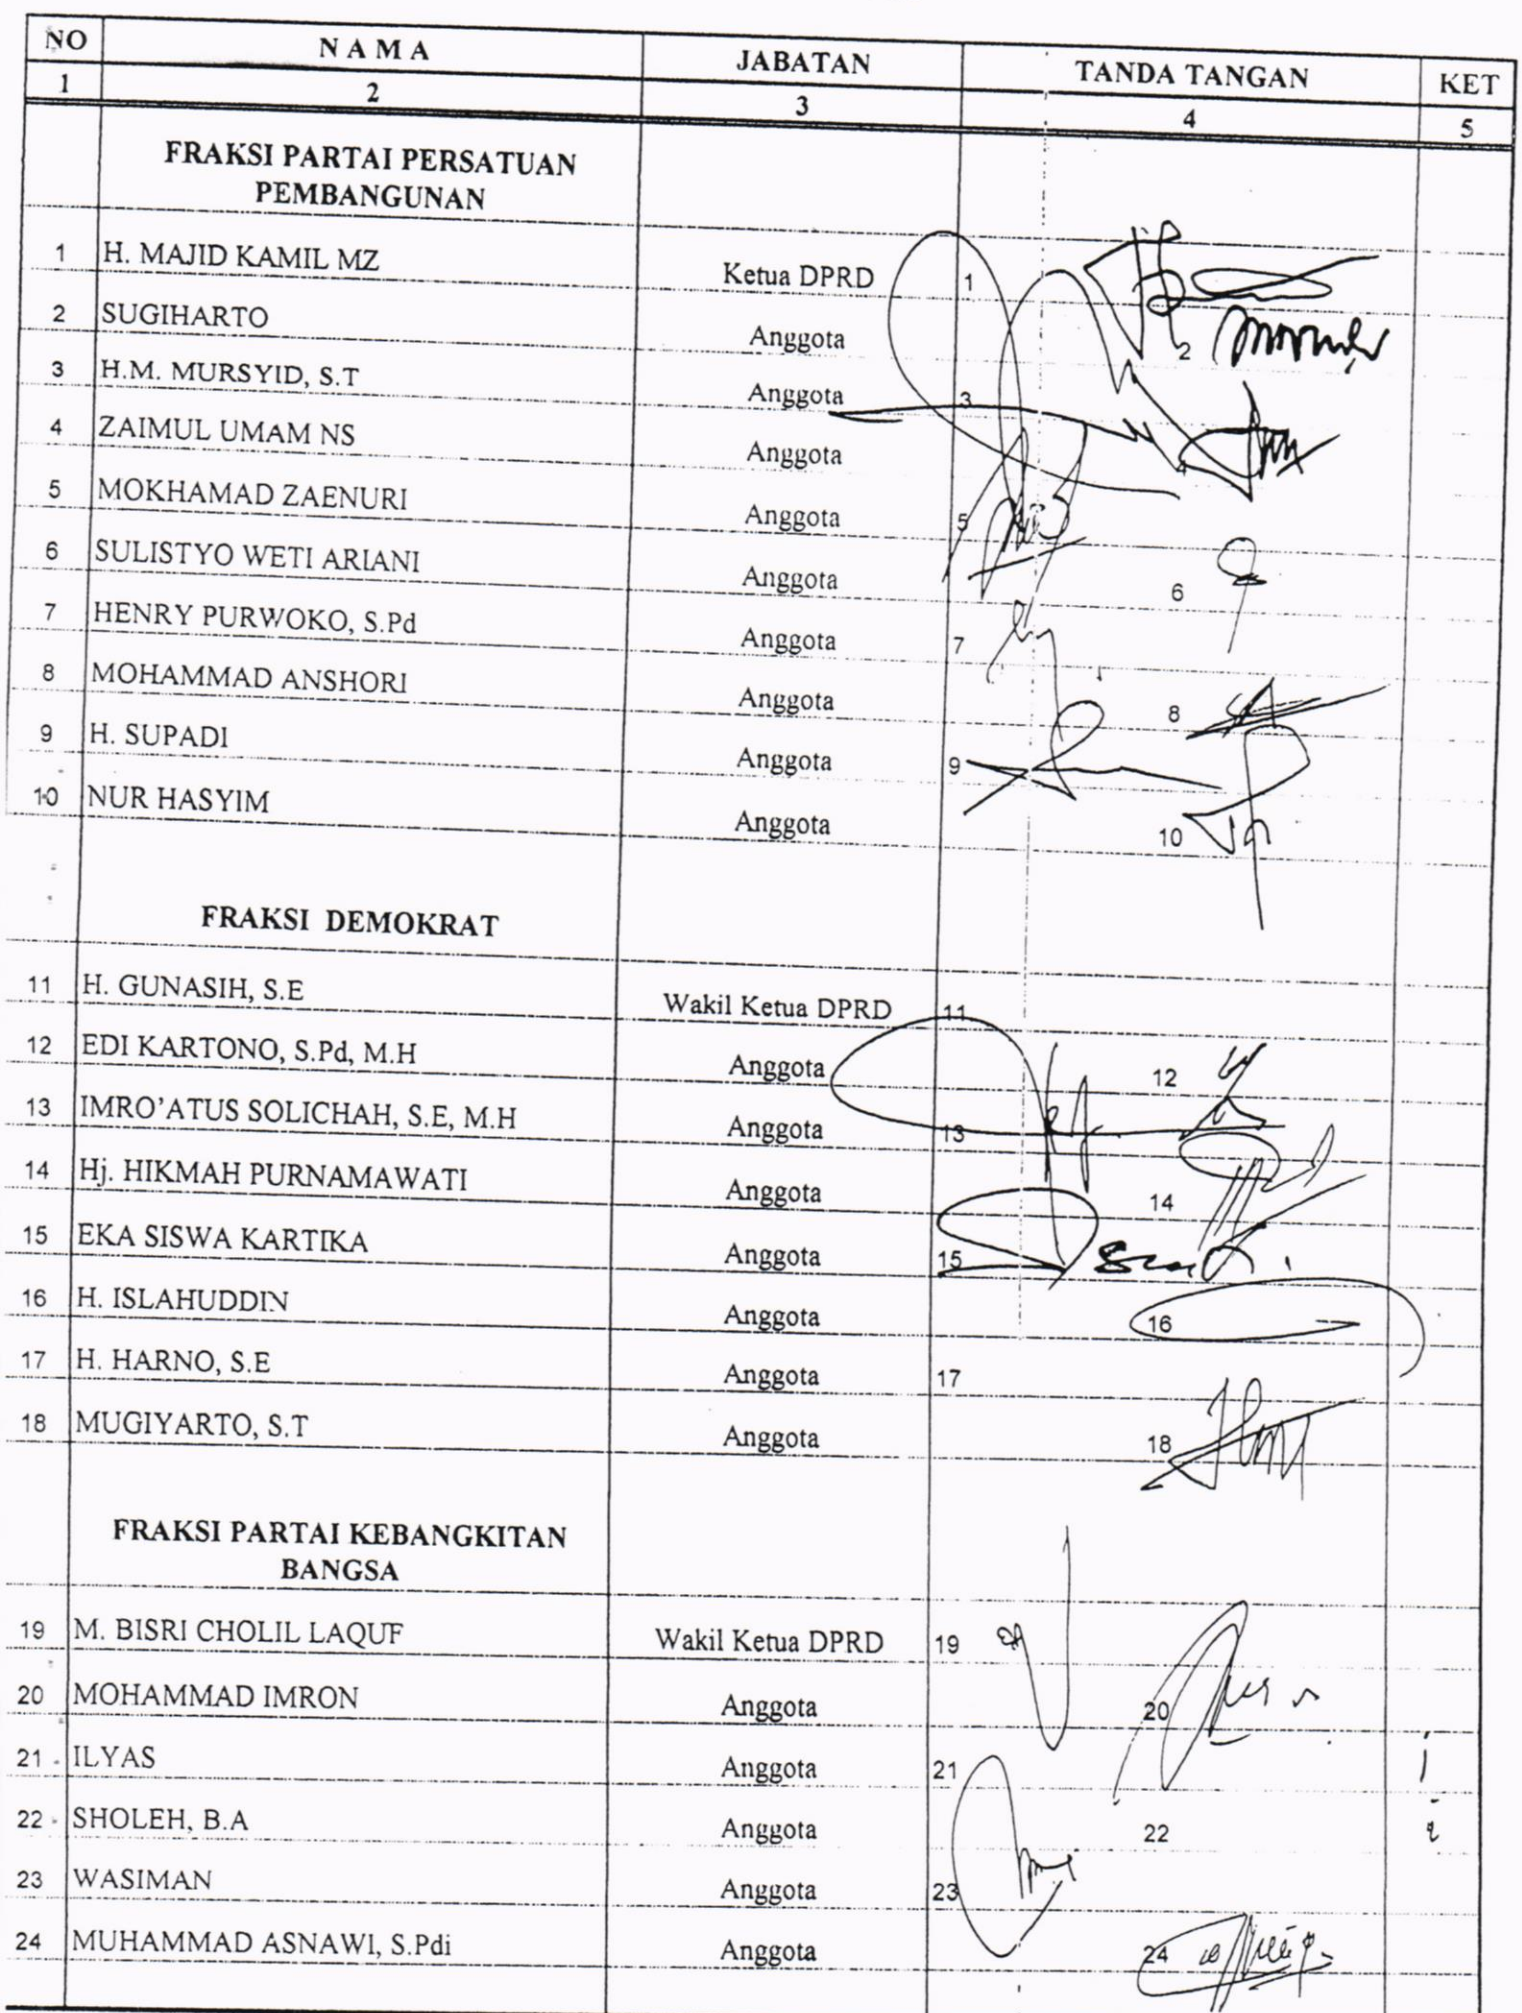 NO NAMA JABATAN TANDA TANGAN KET
1 2 3 4 5
FRAKSI PARTAI PERSATUAN
PEMBANGUNAN
1 H. MAJID KAMIL MZ Ketua DPRD 1
2 SUGIHARTO Anggota 2
3 H.M. MURSYID, S.T Anggota 3
4 ZAIMUL UMAM NS Anggota 4
5 MOKHAMAD ZAENURI Anggota 5
6 SULISTYO WETI ARIANI Anggota 6
7 HENRY PURWOKO, S.Pd Anggota 7
8 MOHAMMAD ANSHORI Anggota 8
9 H. SUPADI Anggota 9
10 NUR HASYIM Anggota 10
FRAKSI DEMOKRAT
11 H. GUNASIH, S.E Wakil Ketua DPRD 11
12 EDI KARTONO, S.Pd, M.H Anggota 12
13 IMRO’ATUS SOLICHAH, S.E, M.H Anggota 13
14 Hj. HIKMAH PURNAMAWATI Anggota 14
15 EKA SISWA KARTIKA Anggota 15
16 H. ISLAHUDDIN Anggota 16
17 H. HARNO, S.E Anggota 17
18 MUGIYARTO, S.T Anggota 18
FRAKSI PARTAI KEBANGKITAN
BANGSA
19 M. BISRI CHOLIL LAQUF Wakil Ketua DPRD 19
20 MOHAMMAD IMRON Anggota 20
21 ILYAS Anggota 21
22 SHOLEH, B.A Anggota 22
23 WASIMAN Anggota 23
24 MUHAMMAD ASNAWI, S.Pdi Anggota 24